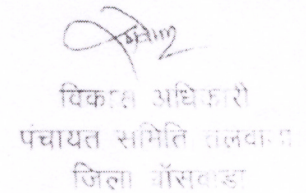 विकास अधिकारी
पंचायत समिति तलवाड़ा
जिला बाँसवाड़ा